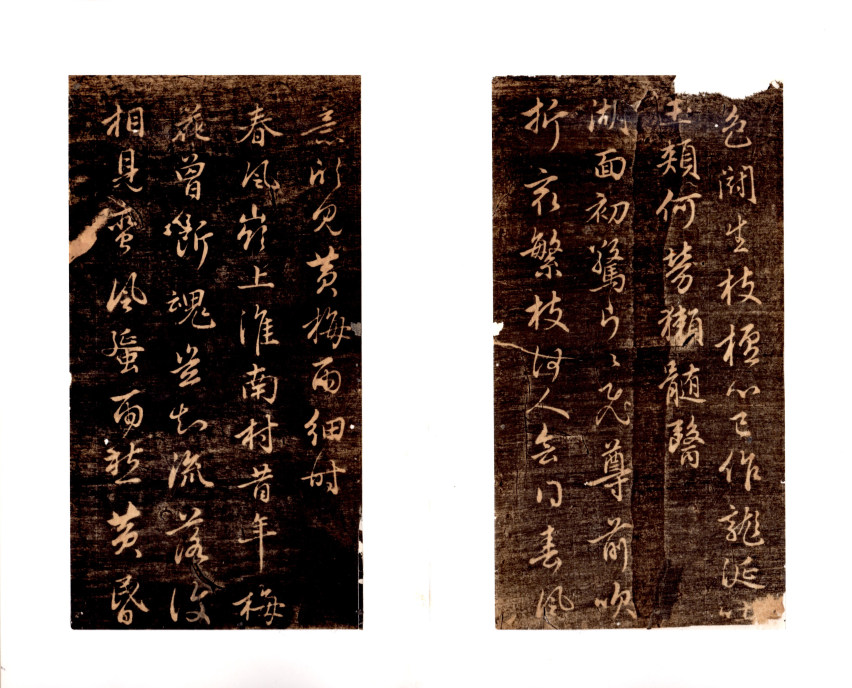 色闘生枝檀心已作龍涎吐
玉頰何勞獺髓醫
湖面初驚片〻飛尊前吹
折最繁枝何人會得春風
意怕見黃梅雨細時
春風嶺上淮南村昔年梅
花曾斷魂豈知流落復
相見蠻風蜑雨愁黃昏